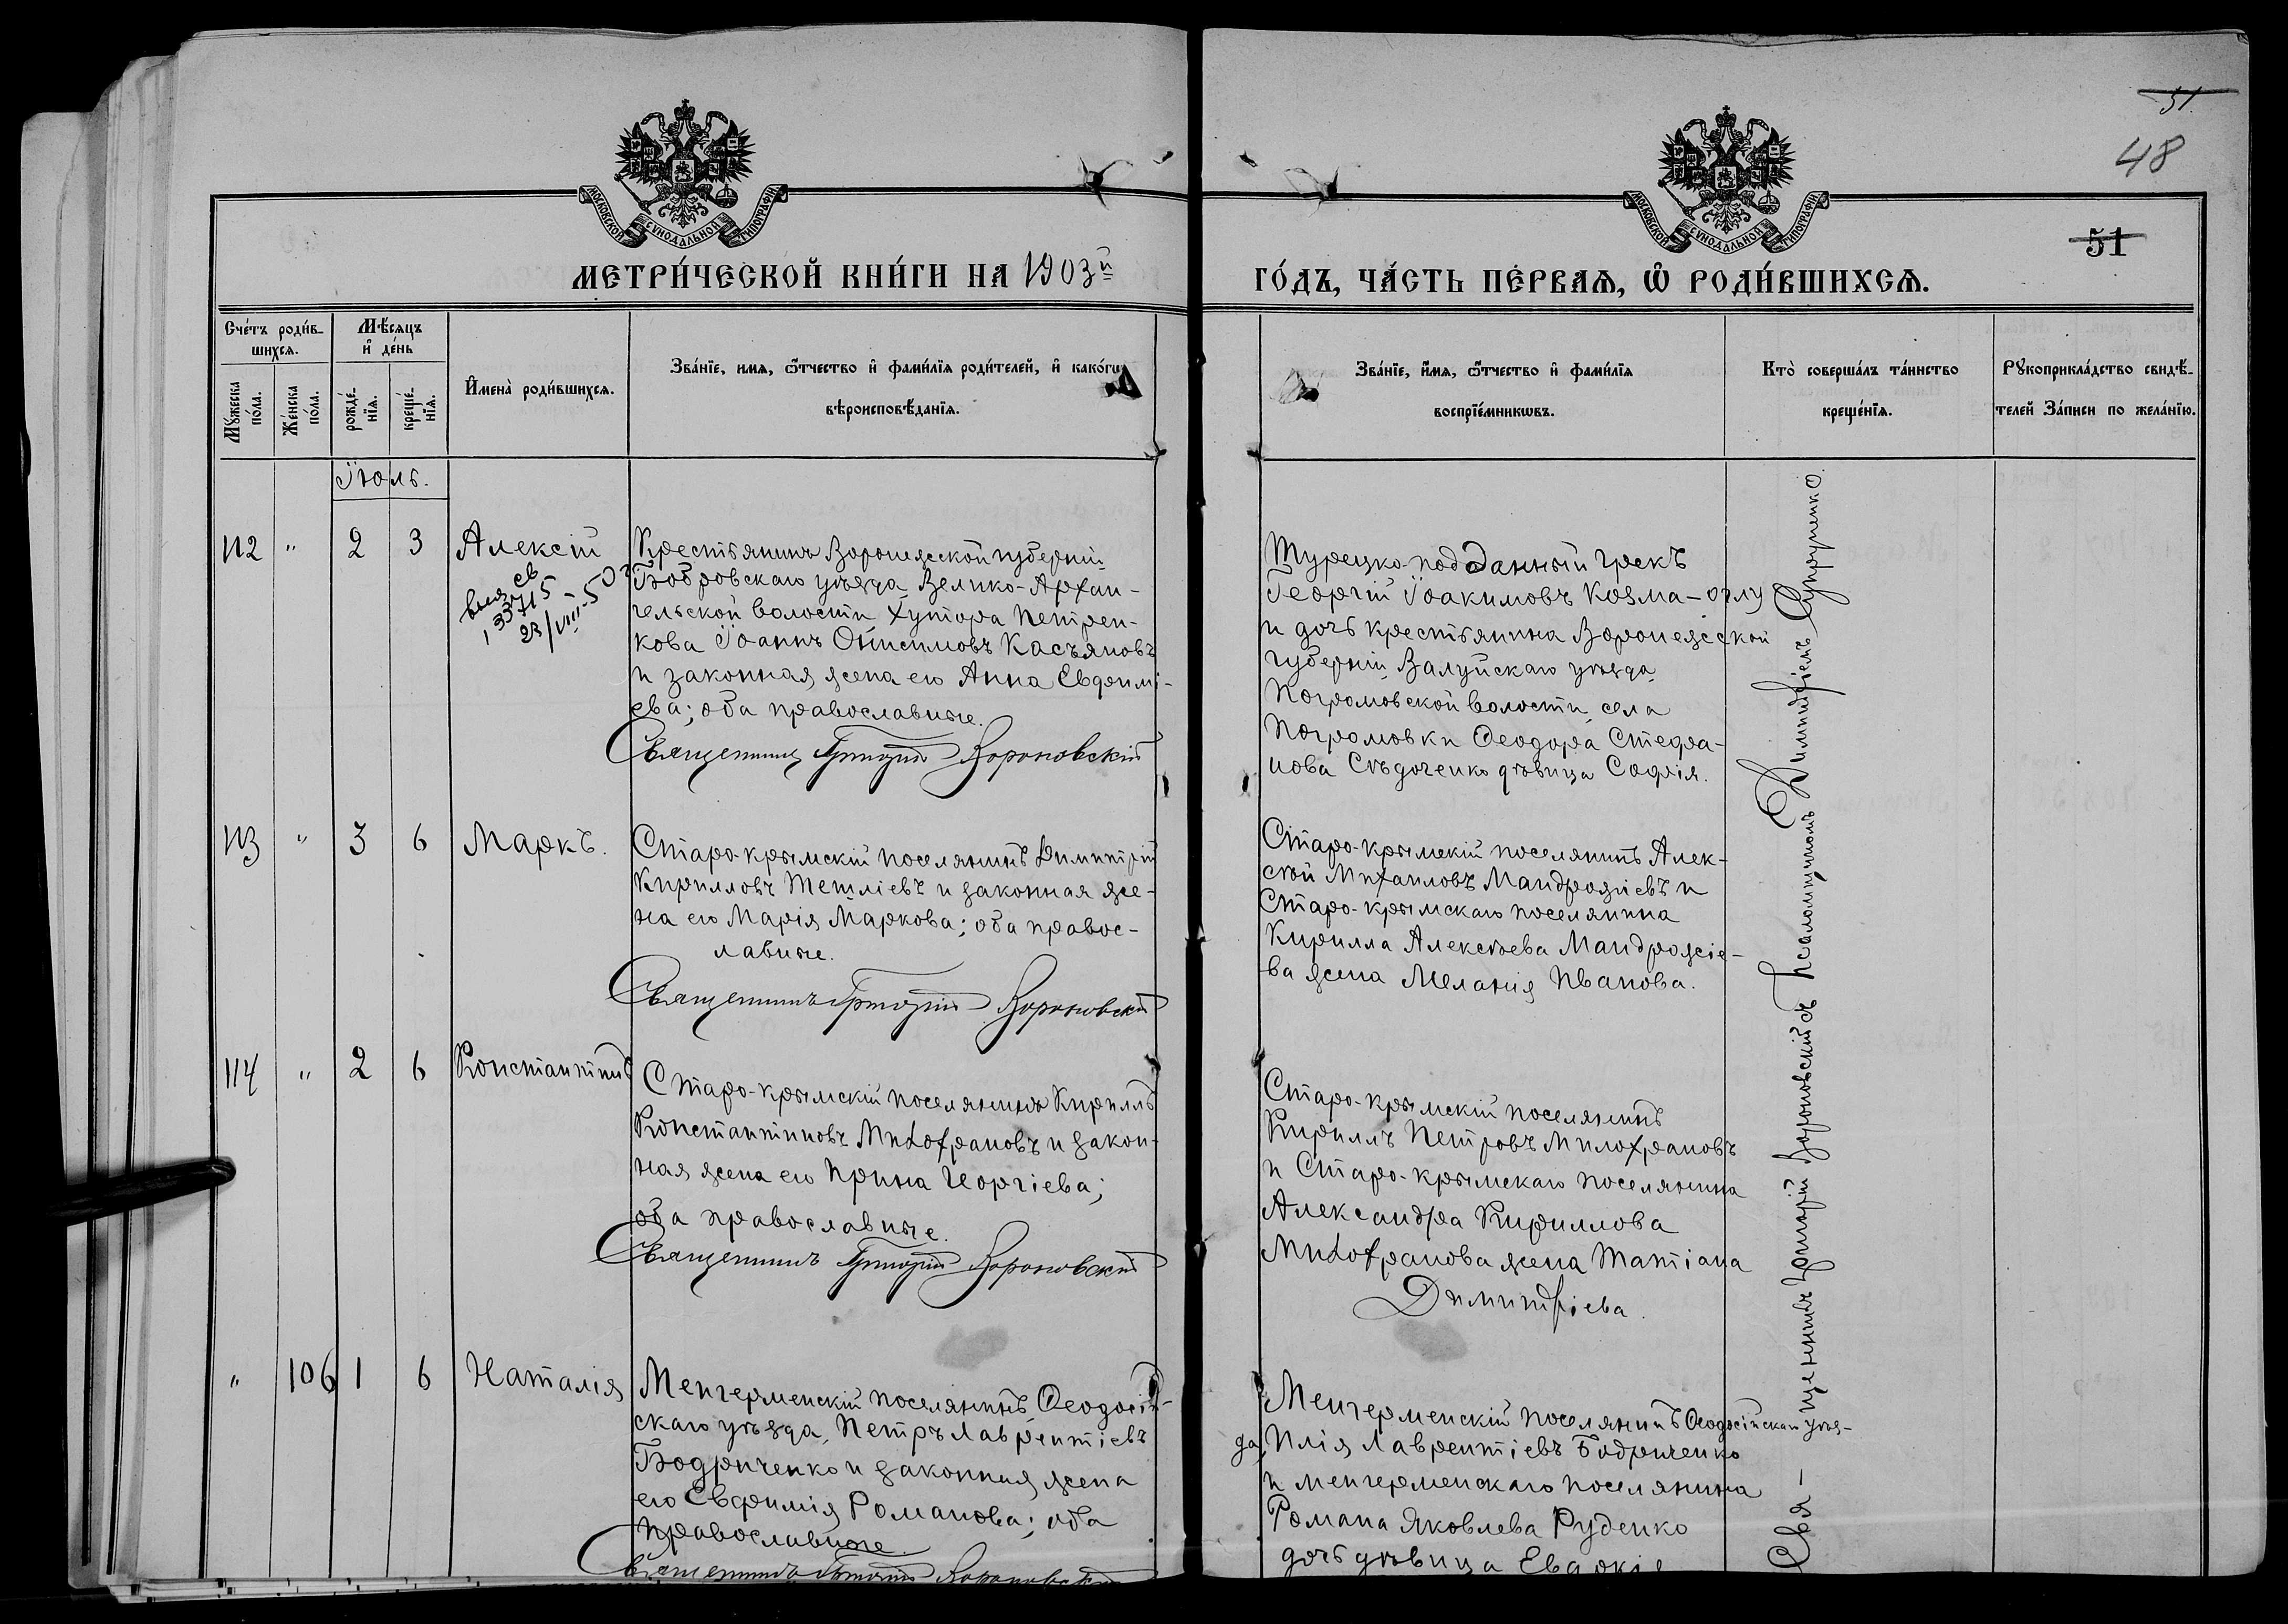 51.
48
51
МОСКОВСКОЙ СѴНОДАЛЬНОЙ ТИПОГРАФІИ
МОСКОВСКОЙ СѴНОДАЛЬНОЙ ТИПОГРАФІИ
МЕТРИ́ЧЕСКОЙ КНИ́ГИ НА 1903й
ГО́ДЪ, ЧА́СТЬ ПЕ́РВАѦ, Ѡ҆ РОДИ́ВШИХСѦ.
Сче́тъ роди́в-
шихсѧ.
Мѣ́сѧцъ
и҆ де́нь
Мꙋ́жеска
по́ла.
Же́нска
по́ла.
рожде́-
нїѧ.
креще́-
нїѧ.
И҆мена̀ роди́вшихсѧ.
Зва́нїе, имѧ, ѻ҆́тчество и҆ фами́лїѧ роди́телей, и҆ како́гѡ
вѣроисповѣ́данїѧ.
Зва́нїе, и҆́мѧ, ѻ҆́тчество и҆ фами́лїѧ
воспрїе́мникѡвъ.
Кто̀ соверша́лъ та́инство
креще́нїѧ.
Рꙋкоприкла́дство свидѣ́-
телей За́писи по жела́нїю.
Іюль.
112 " 2 3 Алексій
св
133715
23/VIII-50
Крестьянинъ Воронежской губерніи
Бобровскаго уѣзда Велико-Архан-
гельской волости хутора Петрен-
кова Іоаннъ Онисимовъ Касьяновъ
и законная жена его Анна Евфимі-
ева; оба православные.
Священникъ Григорій Вороновскій
Турецко-подданный грекъ
Георгій Іоакимовъ Козма-оглу
и дочь крестьянина Воронежской
губерніи Валуйскаго уѣзда
Погромовской волости, села
Погромовки Ѳеодора Стефа-
нова Слѣдоченко дѣвица Софія.
113 " 3 6 Маркъ.
Старо-крымскій поселянинъ Димитрій
Кирилловъ Тешліевъ и законная же-
на его Марія Маркова; оба правос-
лавные.
Священникъ Григорій Вороновскій
Старо-крымскій поселянинъ Алек-
сѣй Михаиловъ Мандражіевъ и
Старо-крымскаго поселянина
Кирилла Алексѣева Мандражіе-
ва жена Меланія Иванова.
114 " 2 6 Константинъ
Старо-крымскій поселянинъ Кириллъ
Константиновъ Милохрановъ и закон-
ная жена его Ирина Георгіева;
оба православные.
Священникъ Григорій Вороновскій
Старо-крымскій поселянинъ
Кириллъ Петровъ Милохрановъ
и Старо-крымскаго поселянина
Александра Кириллова
Милохранова жена Татіана
Димитріева.
" 106 1 6 Наталія
Менгерменскій поселянинъ Ѳеодосій-
скаго уѣзда, Петръ Лаврентіевъ
Бодриченко и законная жена
его Евфимія Романова; оба
православные.
Священникъ Григорій Вороновскій
Менгерменскій поселянинъ Ѳеодосійскаго уѣз-
да, Илія Лаврентіевъ Бодриченко
и менгерменскаго поселянина
Романа Яковлева Руденко
дочь дѣвица Евдокія
Свя-щенникъ Григорій Вороновскій съ Псаломщикомъ